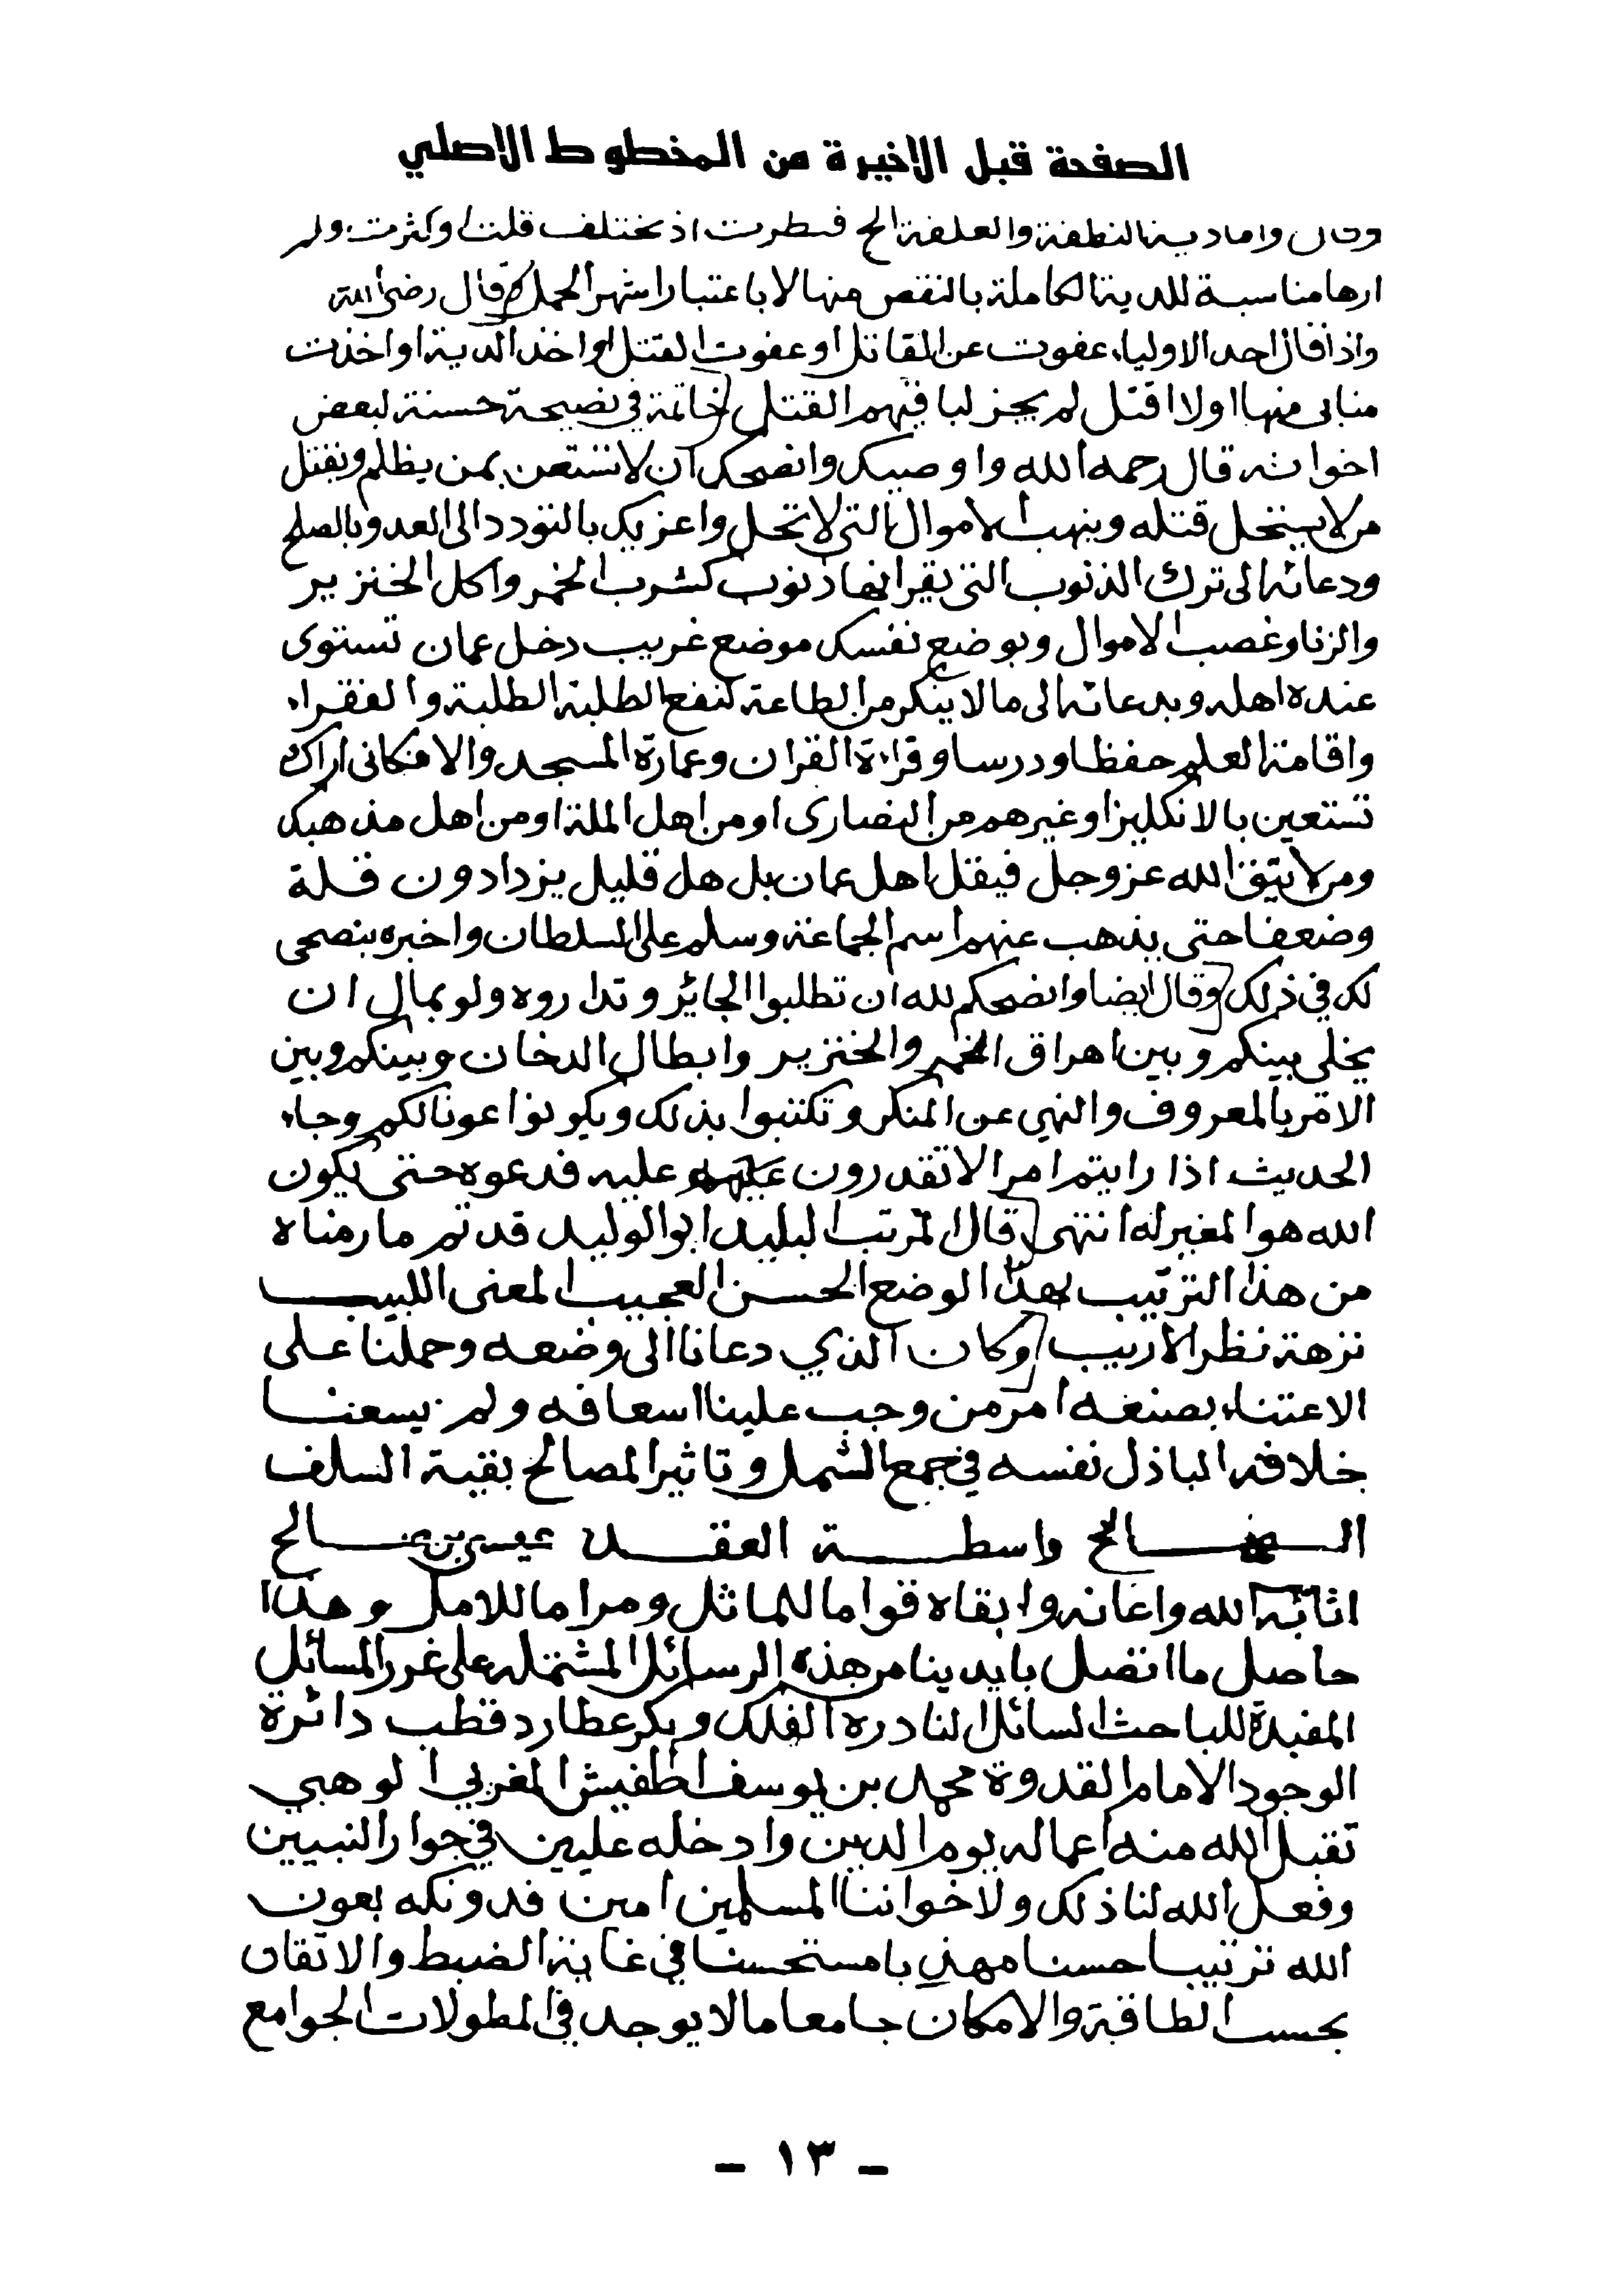 الصفحة قبل الاخيرة من المخطوط الاصلي
وقال واما دية النطفة والعلقة الخ فسطرت اذ تختلف قلت او كثرت ولم
ارها مناسبة للدية الكاملة بالنقص منها الا باعتبار اشهر الحمل وقال رضى الله
واذا قال احد الاولياء عفوت عن القاتل او عفوت القتل او اخذ الدية او اخذت
منابى منها او لا اقتل لم يجز لباقيهم القتل خاتمة في نصيحة حسنة لبعض
اخوانه قال رحمه الله واوصيك وانصحك ان لا تستعن بمن يظلم ويقتل
من لا يستحل قتله وينهب الاموال التى لا تحل واعزيك بالتودد الى العدو وبالصلح
ودعائه الى ترك الذنوب التى يقر انها ذنوب كشرب الخمر واكل الخنزير
والزنا وغصب الاموال وبوضع نفسك موضع غريب دخل عمان تستوى
عنده اهله وبدعائه الى ما لا ينكر من الطاعة كنفع الطلبة الطلبة والفقراء
واقامة العلم حفظا ودرسا وقراءة القران وعمارة المسجد والا فكانى اراك
تستعين بالانكليز او غيرهم من النصارى او من اهل الملة او من اهل مذهبك
ومن لا يتق الله عز وجل فيقل اهل عمان بل هل قليل يزدادون قلة
وضعفا حتى يذهب عنهم اسم الجماعة وسلم على السلطان واخبره بنصحى
لك في ذلك وقال ايضا وانصحكم لله ان تطلبوا الجائر وتداروه ولو بمال ان
يخلى بينكم وبين اهراق الخمر والخنزير وابطال الدخان وبينكم وبين
الامر بالمعروف والنهي عن المنكر وتكتبوا بذلك ويكونوا عونا لكم وجاء
الحديث اذا رايتم امرا لا تقدرون عليه فدعوه حتى يكون
الله هو المغير له انتهى قال المرتب لبليد ابو الوليد قد تم ما رمناه
من هذا الترتيب بهذا الوضع الحسن العجيب المعنى اللبيب
نزهة نظر الاريب وكان الذي دعانا الى وضعه وحملنا على
الاعتناء بصنعه امر من وجب علينا اسعافه ولم يسعنا
خلافه الباذل نفسه في جمع الشمل وتاثير المصالح بقية السلف
الصالح واسطة العقد عيسى بن صالح
اثابه الله واعانه وابقاه قواما للماثل ومراما للامل وهذا
حاصل ما اتصل بايدينا من هذه الرسائل المشتمله على غرر المسائل
المفيدة للباحث السائل لنادرة الفلك وبكر عطارد قطب دائرة
الوجود الامام القدوة محمد بن يوسف اطفيش المغربي الوهبي
تقبل الله منه اعماله يوم الدين وادخله عليين في جوار النبيين
وفعل الله لنا ذلك ولاخواننا المسلمين امين فدونكه بعون
الله ترتيبا حسنا مهذبا مستحسنا في غاية الضبط والاتقان
بحسب الطاقة والامكان جامعا ما لا يوجد في المطولات الجوامع
- ١٣ -